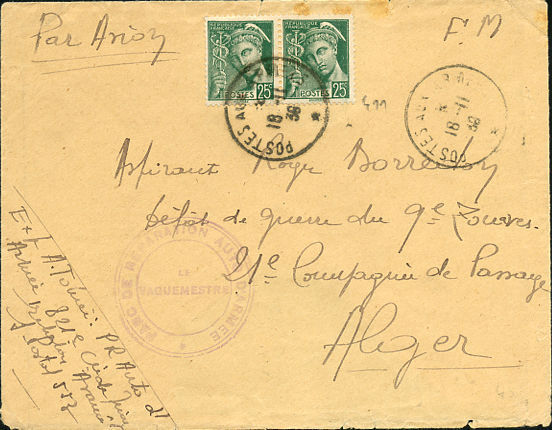 Par Avion
F M
RÉPUBLIQUE FRANÇAISE
POSTES 25c
RÉPUBLIQUE FRANÇAISE
POSTES 25c
POSTES AUX ARMÉES
18-11
39
POSTES AUX ARMÉES
18-11
39
411
Aspirant Roger
Dépôt de guerre du 9e Zouaves
21e Compagnie de Passage
Alger
PARC DE RÉPARATION AUTO D'ARMÉE
LE
VAQUEMESTRE
Ext A. PR Auto
821e Cie
Postal 553